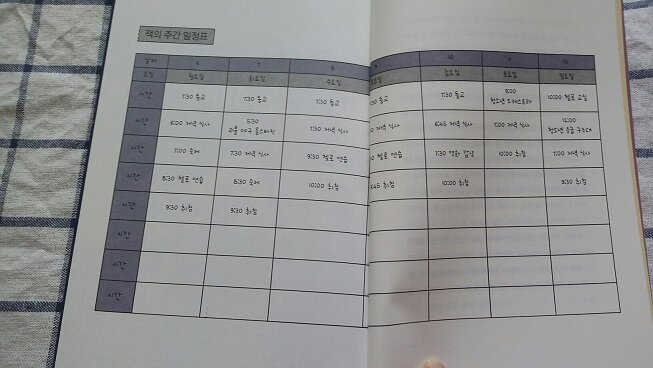 잭의 주간 일정표
날짜 6 7 8 10 11 12
요일 월요일 화요일 수요일 요일 금요일 토요일 일요일
시간 7:30 등교 7:30 등교 7:30 등교 7:30 등교 7:30 등교 9:00 청소년 오케스트라 10:00 첼로 교실
시간 6:00 저녁 식사 5:30 리틀 야구 올스타전 7:30 저녁 식사 저녁 식사 6:45 저녁 식사 7:00 저녁 식사 12:00 청소년 응급 구조대
시간 7:00 숙제 7:30 저녁 식사 9:30 첼로 연습 첼로 연습 7:30 영화 감상 10:00 취침 7:00 저녁 식사
시간 8:30 첼로 연습 8:30 숙제 10:00 취침 :45 취침 10:00 취침 9:30 취침
시간 9:30 취침 9:30 취침
시간
시간
시간